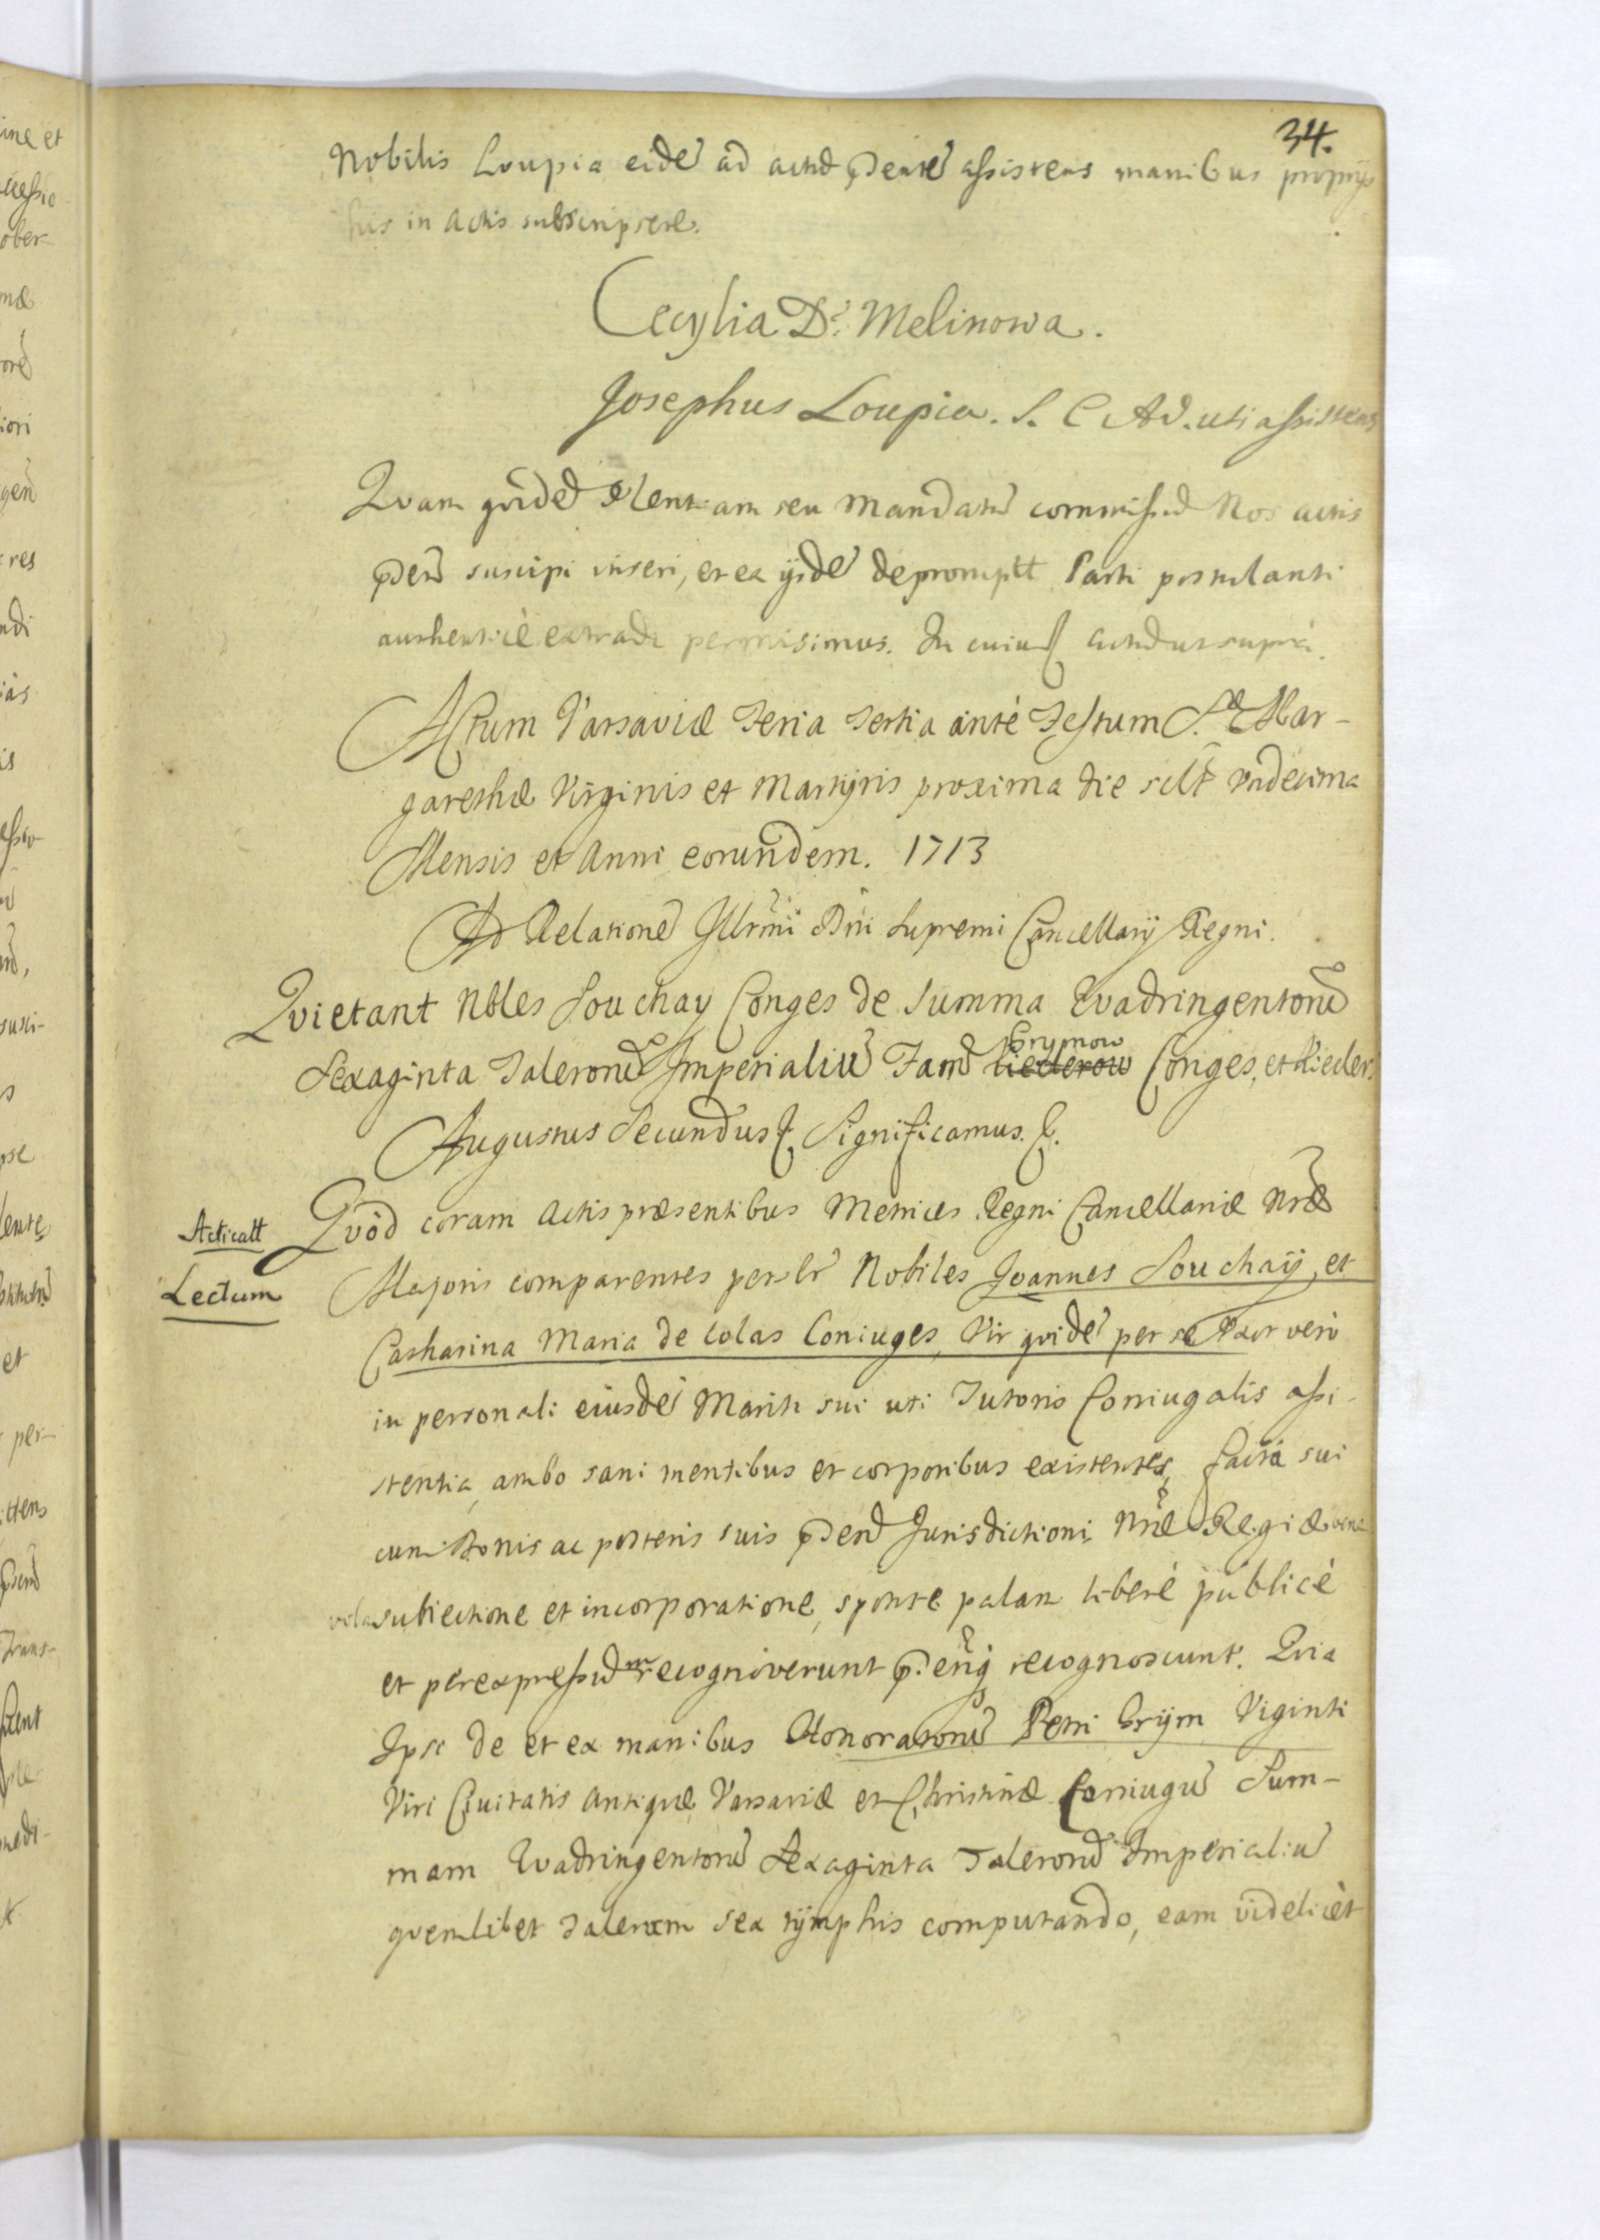 34.
Nobilis Loupia eidē ad actū pdentē assistens manibus proprijs
his in Actis subscripsere.
Cecylia D. Melinowa.
Josephus Loupia. S. C. Ad. uti assistens
Qvam qvidē Plent:am seu Mandatū commissū Nos actis
pdens suscipi inseri, et ex ijsdē depromptt Parti postulanti
authenticè extradi permisimus. In cuius actū ut supra.
Actum Varsaviæ Feria Tertia antè Festum S. Mar-
garethæ Virginis et Martyris proxima die scilt Undecima
Mensis et Anni eorundem. 1713
Ad Relationē Illrmi Dni Supremi Cancellarij Regni.
Qvietant Nbles Souchay Conges de Summa Qvadringentorū
Sexaginta Talerorū Imperialiū Famd Grymow Conges, et Rieder.
Augustus Secundus Significamus.
Acticatt
Lectum
Qvòd coram Actis præsentibus Metrices Regni Cancellariæ Nræ
Majoris comparentes persolr Nobiles Joannes Souchaÿ, et
Catharina Maria de Colas Coniuges, Vir qvidē per se Uxor verò
in personali eiusdē Mariti sui uti Tutoris Coniugalis assi-
stentia, ambo sani mentibus et corporibus existentes, factâ sui
cum Bonis ac posteris suis pdend Jurisdictioni Nræ Regiæ bene
vola subiectione et incorporatione, sponte palam liberè publicè
et per expressum recognoverunt pdenq recognoscunt. Qvia
Ipse de et ex manibus Honoratorū Petri Grÿm Viginti
Viri Civitatis Antiqvæ Varsaviæ et Christinæ Coniugū Sum-
mam Qvadringentorū Sexaginta Talerorū Imperialiū
qvemlibet Talerum sex tÿmphis computando, eam videlicèt